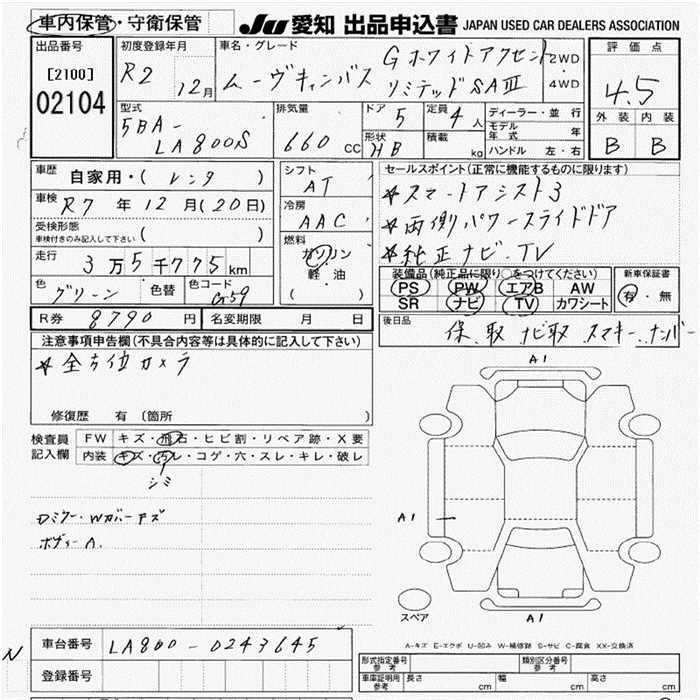 車内保管・守衛保管
JU 愛知 出品申込書 JAPAN USED CAR DEALERS ASSOCIATION
出品番号
[2100]
02104
初度登録年月
R2 12月
車名・グレード
ムーヴキャンバス
Gホワイトアクセント
リミテッドSAⅢ
2WD
・
4WD
評価点
4.5
外装 内装
B B
型式
5BA-
LA800S
排気量
660 CC
ドア
5
形状
HB
定員
4人
積載
kg
ディーラー・並行
モデル年式 年
ハンドル 左・右
車歴
自家用・(レンタ)
車検
R7年12月(20日)
受検形態
車検付きのみ記入して下さい ( )
走行
3万5千775km
色
グリーン
色替
色コード
G59
シフト
AT
冷房
AAC
燃料
ガソリン
軽油
( ・ )
セールスポイント(正常に機能するものに限ります)
★スマートアシスト3
★両側パワースライドドア
★純正ナビ・TV
装備品(純正品に限り○をつけてください)
PS PW エアB AW
SR ナビ TV カワシート
新車保証書
有・無
R券 8790円
名変期限 月 日
後日品
保.取 ナビ取 スマキー.ナンバー
注意事項申告欄(不具合内容等は具体的に記入して下さい)
★全方位カメラ
修復歴 有(箇所 )
検査員
記入欄
FW キズ・飛石・ヒビ割・リペア跡・X要
内装 キズ・汚レ・コゲ・穴・スレ・キレ・破レ
シミ
ロミラー・Wカバーキズ
ボディーA.
A1
A1
A1
スペア
A-キズ E-エクボ U-凹み W-補修跡 S-サビ C-腐食 XX-交換済
N
車台番号 LA800-0243645
登録番号
形式指定番号
参考
類別区分番号
参考
車庫証明用
参考
長さ cm
幅 cm
高さ cm